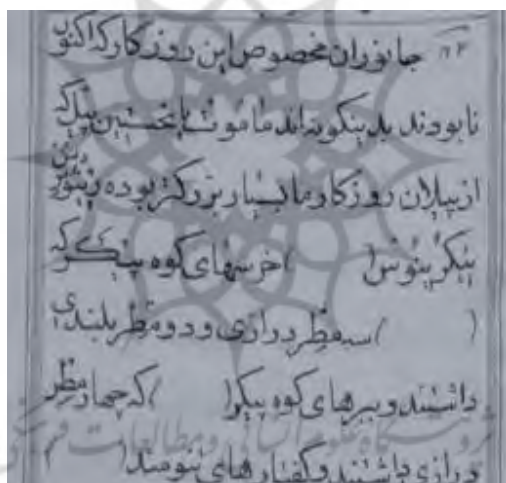 جانوران مخصوص این روزگار که اکنون
نابودند بدینگونه‌اند ماموت یا نخستین پیل که
از پیلان روزگار ما بسیار بزرگتر بوده
( ) خرسهای کوه پیکر که
( ) سه مطر درازی و دو مطر بلندی
داشتند و ببرهای کوه پیکر ( ) که چهار مطر
درازی داشتند و کفتارهای تنومند ( )